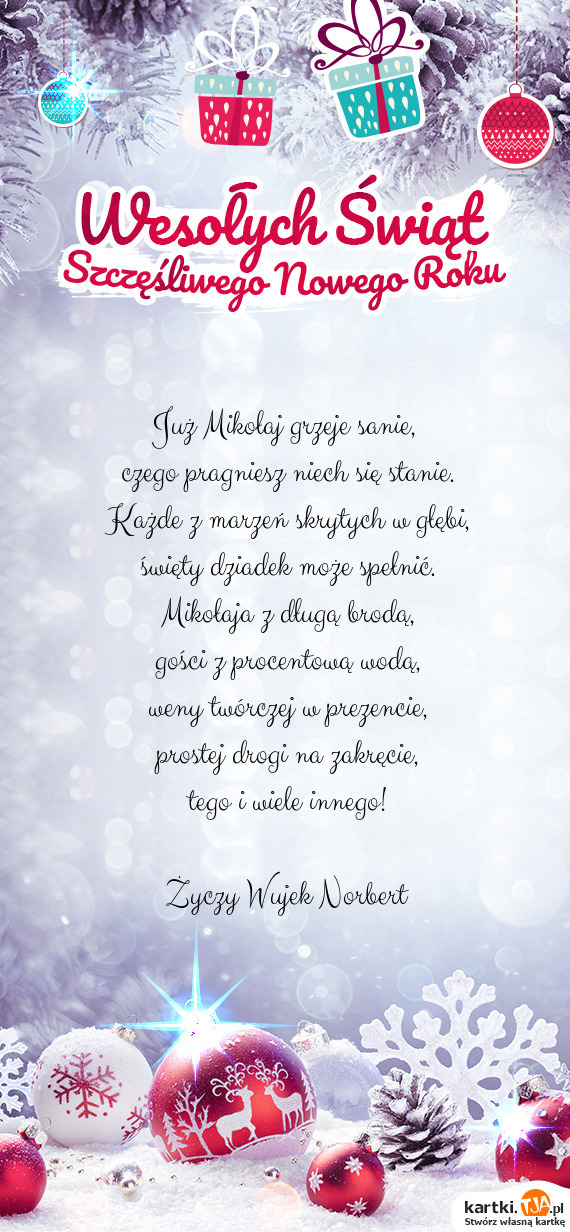 Wesołych Świąt
Szczęśliwego Nowego Roku
Już Mikołaj grzeje sanie,
czego pragniesz niech się stanie.
Każde z marzeń skrytych w głębi,
święty dziadek może spełnić.
Mikołaja z długą brodą,
gości z procentową wodą,
weny twórczej w prezencie,
prostej drogi na zakręcie,
tego i wiele innego!
Życzy Wujek Norbert
kartki.TJA.pl
Stwórz własną kartkę